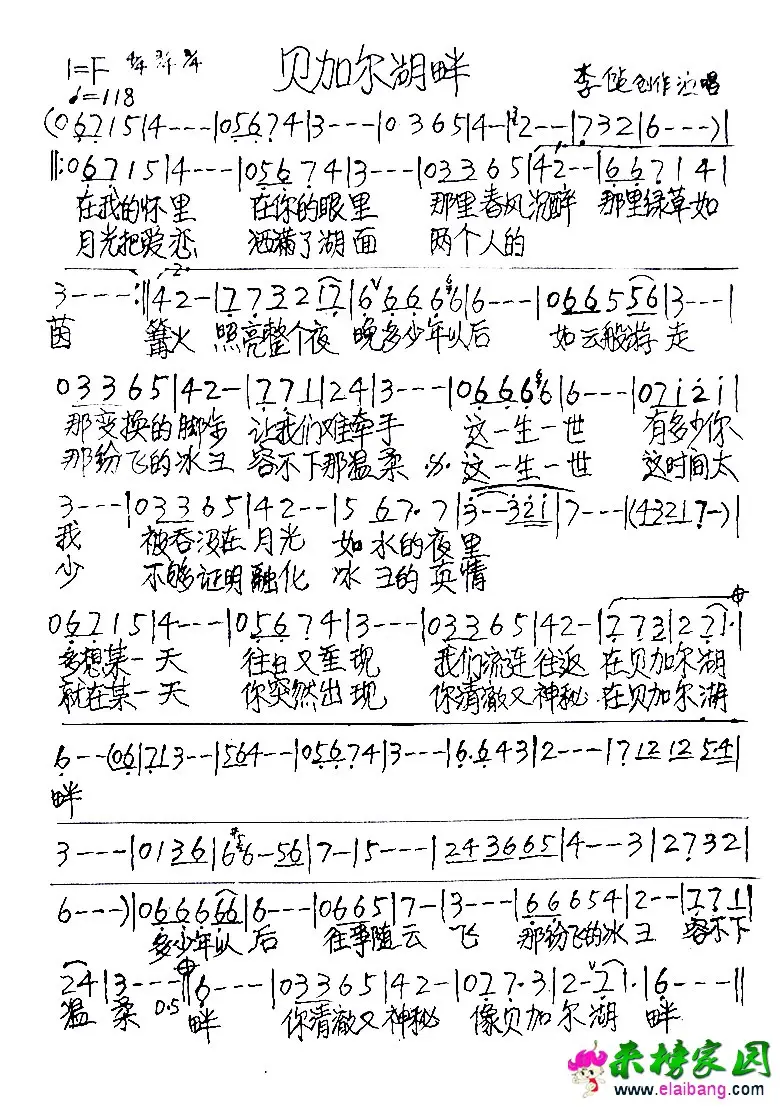 贝加尔湖畔
1=F 4/4 3/4 2/4
♩=118
李健创作演唱
(0 6 7 1 5|4 - - -|0 5 6 7 4|3 - - -|0 3 6 5|4 -|2 - -|7 3 2|6 - - -)|
‖:0 6 7 1 5|4 - - -|0 5 6 7 4|3 - - -|0 3 3 6 5|4 2 - -|6 6 7 1 4|
在我的怀里 在你的眼里 那里春风沉醉 那里绿草如
月光把爱恋 洒满了湖面 两个人的
3 - - - :‖4 2 -|7 7 3 2 1 7|6 6 6 6 6|6 - - -|0 6 6 5 5 6|3 - - -|
茵 篝火 照亮整个夜 晚多少年以后 如云般游走
0 3 3 6 5|4 2 -|7 7 1|2 4|3 - - -|0 6 6 6 6|6 - - -|0 7 1 2 1|
那变换的脚步 让我们难牵手 这一生一世 有多少你
那纷飞的冰玉 容不下那温柔 𝄋 这一生一世 这时间太
3 - - -|0 3 3 6 5|4 2 - -|5 6 7· 7|3 - - 3 2 1|7 - - -|(4 3 2 1 7 -)|
我 被吞没在月光 如水的夜里
少 不够证明融化 冰玉的真情
0 6 7 1 5|4 - - -|0 5 6 7 4|3 - - -|0 3 3 6 5|4 2 -|7 7 3|2 7 1·|
多想某一天 往日又重现 我们流连往返 在贝加尔湖
就在某一天 你突然出现 你清澈又神秘 在贝加尔湖
6 - - -(0 6|7 1 3 - -|5 6 4 - -|0 5 6 7 4|3 - - -|6· 6 4 3|2 - - -|7 1 2 1 2 5·4|
畔
3 - - -|0 1 3 6|6 6 - 5 6|7 -|5 - - -|2 4 3 6 6 5|4 - - 3|2 7 3 2|
6 - - -)|0 6 6 6 6 6|6 - - -|0 6 6 5|7 -|3 - - -|6 6 6 5 4|2 - -|7 7 1|
多少年以后 往事随云飞 那纷飞的冰玉 容不下
2 4|3 - - -‖6 - - -|0 3 3 6 5|4 2 -|0 2 7· 3|2 - 2 1·|6 - - -‖
温柔 D.S 畔 你清澈又神秘 像贝加尔湖畔
来榜家园
www.elaibang.com